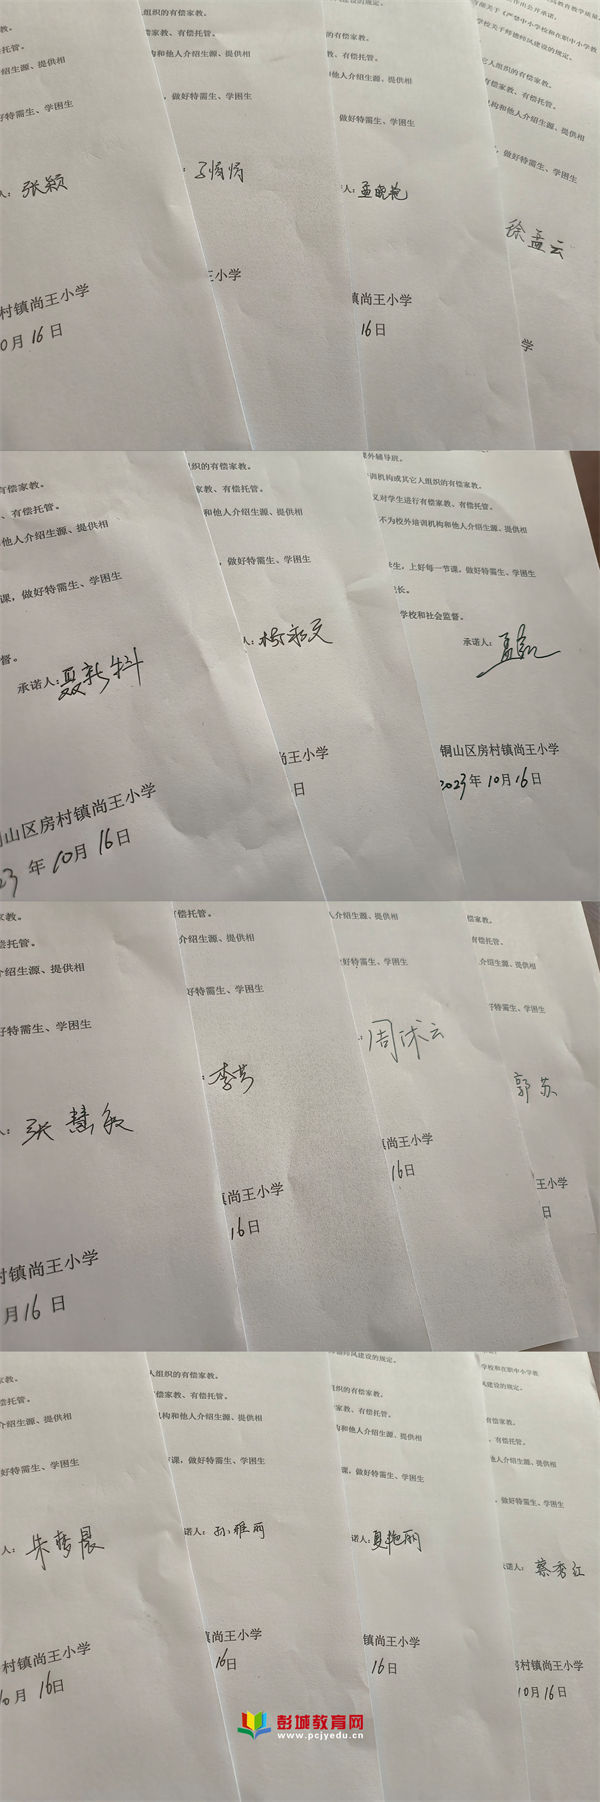 组织的有偿家教。
有偿托管。
绍生源、提供相
好特需生、学困生
人：张颖
村镇尚王小学
0月16日
组织的有偿家教。
家教、有偿托管。
构和他人介绍生源、提供相
，做好特需生、学困生
王小学
织的有偿家教。
教、有偿托管。
和他人介绍生源、提供相
做好特需生、学困生
人：孟晓艳
镇尚王小学
16日
作出公开承诺。
有关于《严禁中小学校和在职中小学教
学校关于师德师风建设的规定。
它人组织的有偿家教。
有偿家教、有偿托管。
机构和他人介绍生源、提供相
，做好特需生、学困生
徐孟云
学
有偿家教。
、有偿托管。
他人介绍生源、提供相
课，做好特需生、学困生
督。
承诺人：聂新科
山区房村镇尚王小学
23年10月16日
组织的有偿家教。
家教、有偿托管。
和他人介绍生源、提供相
，做好特需生、学困生
人：
尚王小学
日
课外辅导班。
培训机构或其它人组织的有偿家教。
义对学生进行有偿家教、有偿托管。
不为校外培训机构和他人介绍生源、提供相
生，上好每一节课，做好特需生、学困生
长。
学校和社会监督。
承诺人：
铜山区房村镇尚王小学
2023年10月16日
家教。
偿托管。
介绍生源、提供相
好特需生、学困生
人：张慧敏
村镇尚王小学
月16日
有偿托管。
介绍生源、提供相
好特需生、学困生
：李芳
镇尚王小学
16日
人介绍生源、提供相
好特需生、学困生
：周沭云
镇尚王小学
16日
偿家教。
有偿托管。
人介绍生源、提供相
好特需生、学困生
郭苏
王小学
日
家教。
有偿托管。
介绍生源、提供相
好特需生、学困生
人：朱梦晨
村镇尚王小学
10月16日
人组织的有偿家教。
家教、有偿托管。
机构和他人介绍生源、提供相
课，做好特需生、学困生
诺人：孙雅丽
镇尚王小学
16日
师风建设的规定。
组织的有偿家教。
家教、有偿托管。
构和他人介绍生源、提供相
课，做好特需生、学困生
诺人：夏艳丽
镇尚王小学
16日
学校和在职中小学教
风建设的规定。
有偿家教。
、有偿托管。
他人介绍生源、提供相
，做好特需生、学困生
承诺人：蔡秀红
房村镇尚王小学
10月16日
彭城教育网
www.pcjyedu.cn